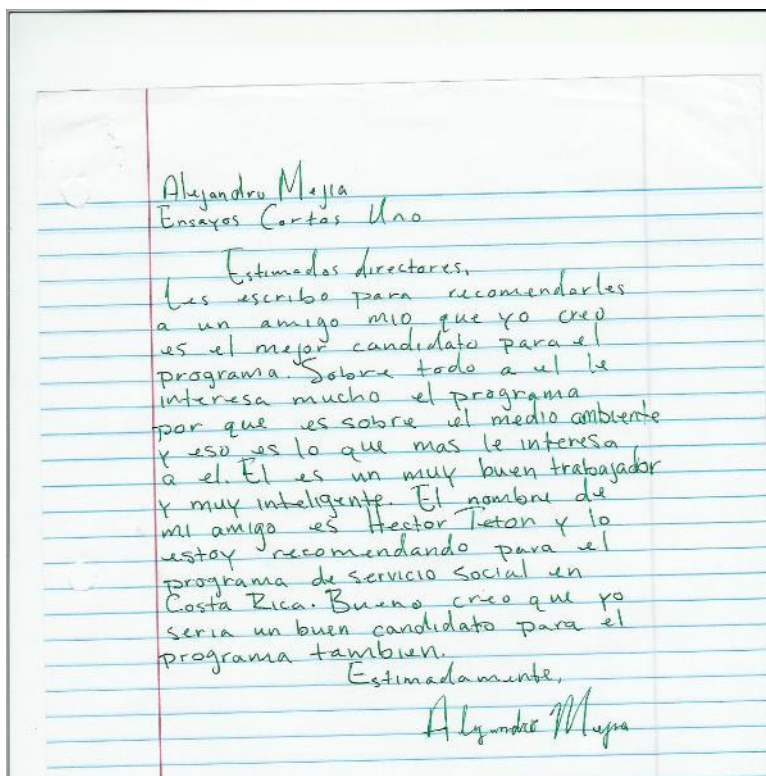 Alejandro Mejia
Ensayos Cortos Uno
Estimados directores,
Les escribo para recomendarles
a un amigo mio que yo creo
es el mejor candidato para el
programa. Sobre todo a el le
interesa mucho el programa
por que es sobre el medio ambiente
y eso es lo que mas le interesa
a el. El es un muy buen trabajador
y muy inteligente. El nombre de
mi amigo es Hector Teton y lo
estoy recomendando para el
programa de servicio social en
Costa Rica. Bueno creo que yo
seria un buen candidato para el
programa tambien.
Estimadamente,
Alejandro Mejia